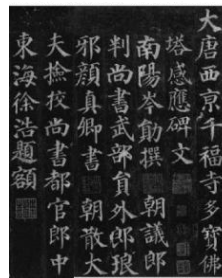 大唐西京千福寺多寳佛
塔感應碑文
南陽岑勛撰 朝議郎
判尚書武部貟外郎琅
邪顔真卿書 朝散大
夫撿挍尚書都官郎中
東海徐浩題額